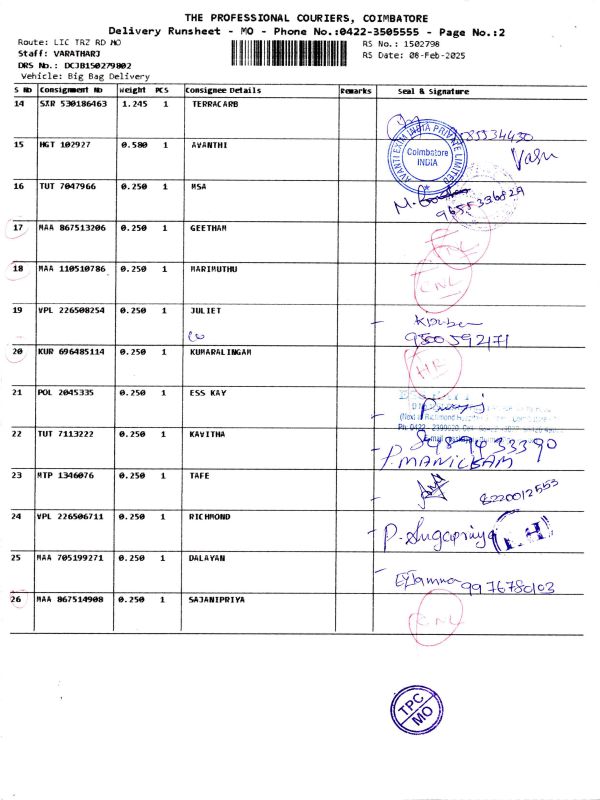 THE PROFESSIONAL COURIERS, COIMBATORE
Delivery Runsheet - MO - Phone No.:0422-3505555 - Page No.:2
Route: LIC TRZ RD MO
RS No.: 1502798
Staff: VARATHARJ
RS Date: 08-Feb-2025
DRS No.: DCJB150279802
Vehicle: Big Bag Delivery
S No Consignment No Weight PCS Consignee Details Remarks Seal & Signature
14 SXR 530186463 1.245 1 TERRACARB
AVANTI EXIM INDIA PRIVATE LIMITED
Coimbatore
INDIA
15 HGT 102927 0.580 1 AVANTHI
Vasu
16 TUT 7047966 0.250 1 MSA
17 MAA 867513206 0.250 1 GEETHAM
CNL
18 MAA 110510786 0.250 1 MARIMUTHU
CNL
19 VPL 226508254 0.250 1 JULIET
9500592171
20 KUR 696485114 0.250 1 KUMARALINGAM
21 POL 2045335 0.250 1 ESS KAY
22 TUT 7113222 0.250 1 KAVITHA
P. MANICKAM
23 MTP 1346076 0.250 1 TAFE
8220012553
24 VPL 226506711 0.250 1 RICHMOND
P. Sugapriya
25 MAA 705199271 0.250 1 DALAYAN
26 MAA 867514908 0.250 1 SAJANIPRIYA
CNL
TPC
MO